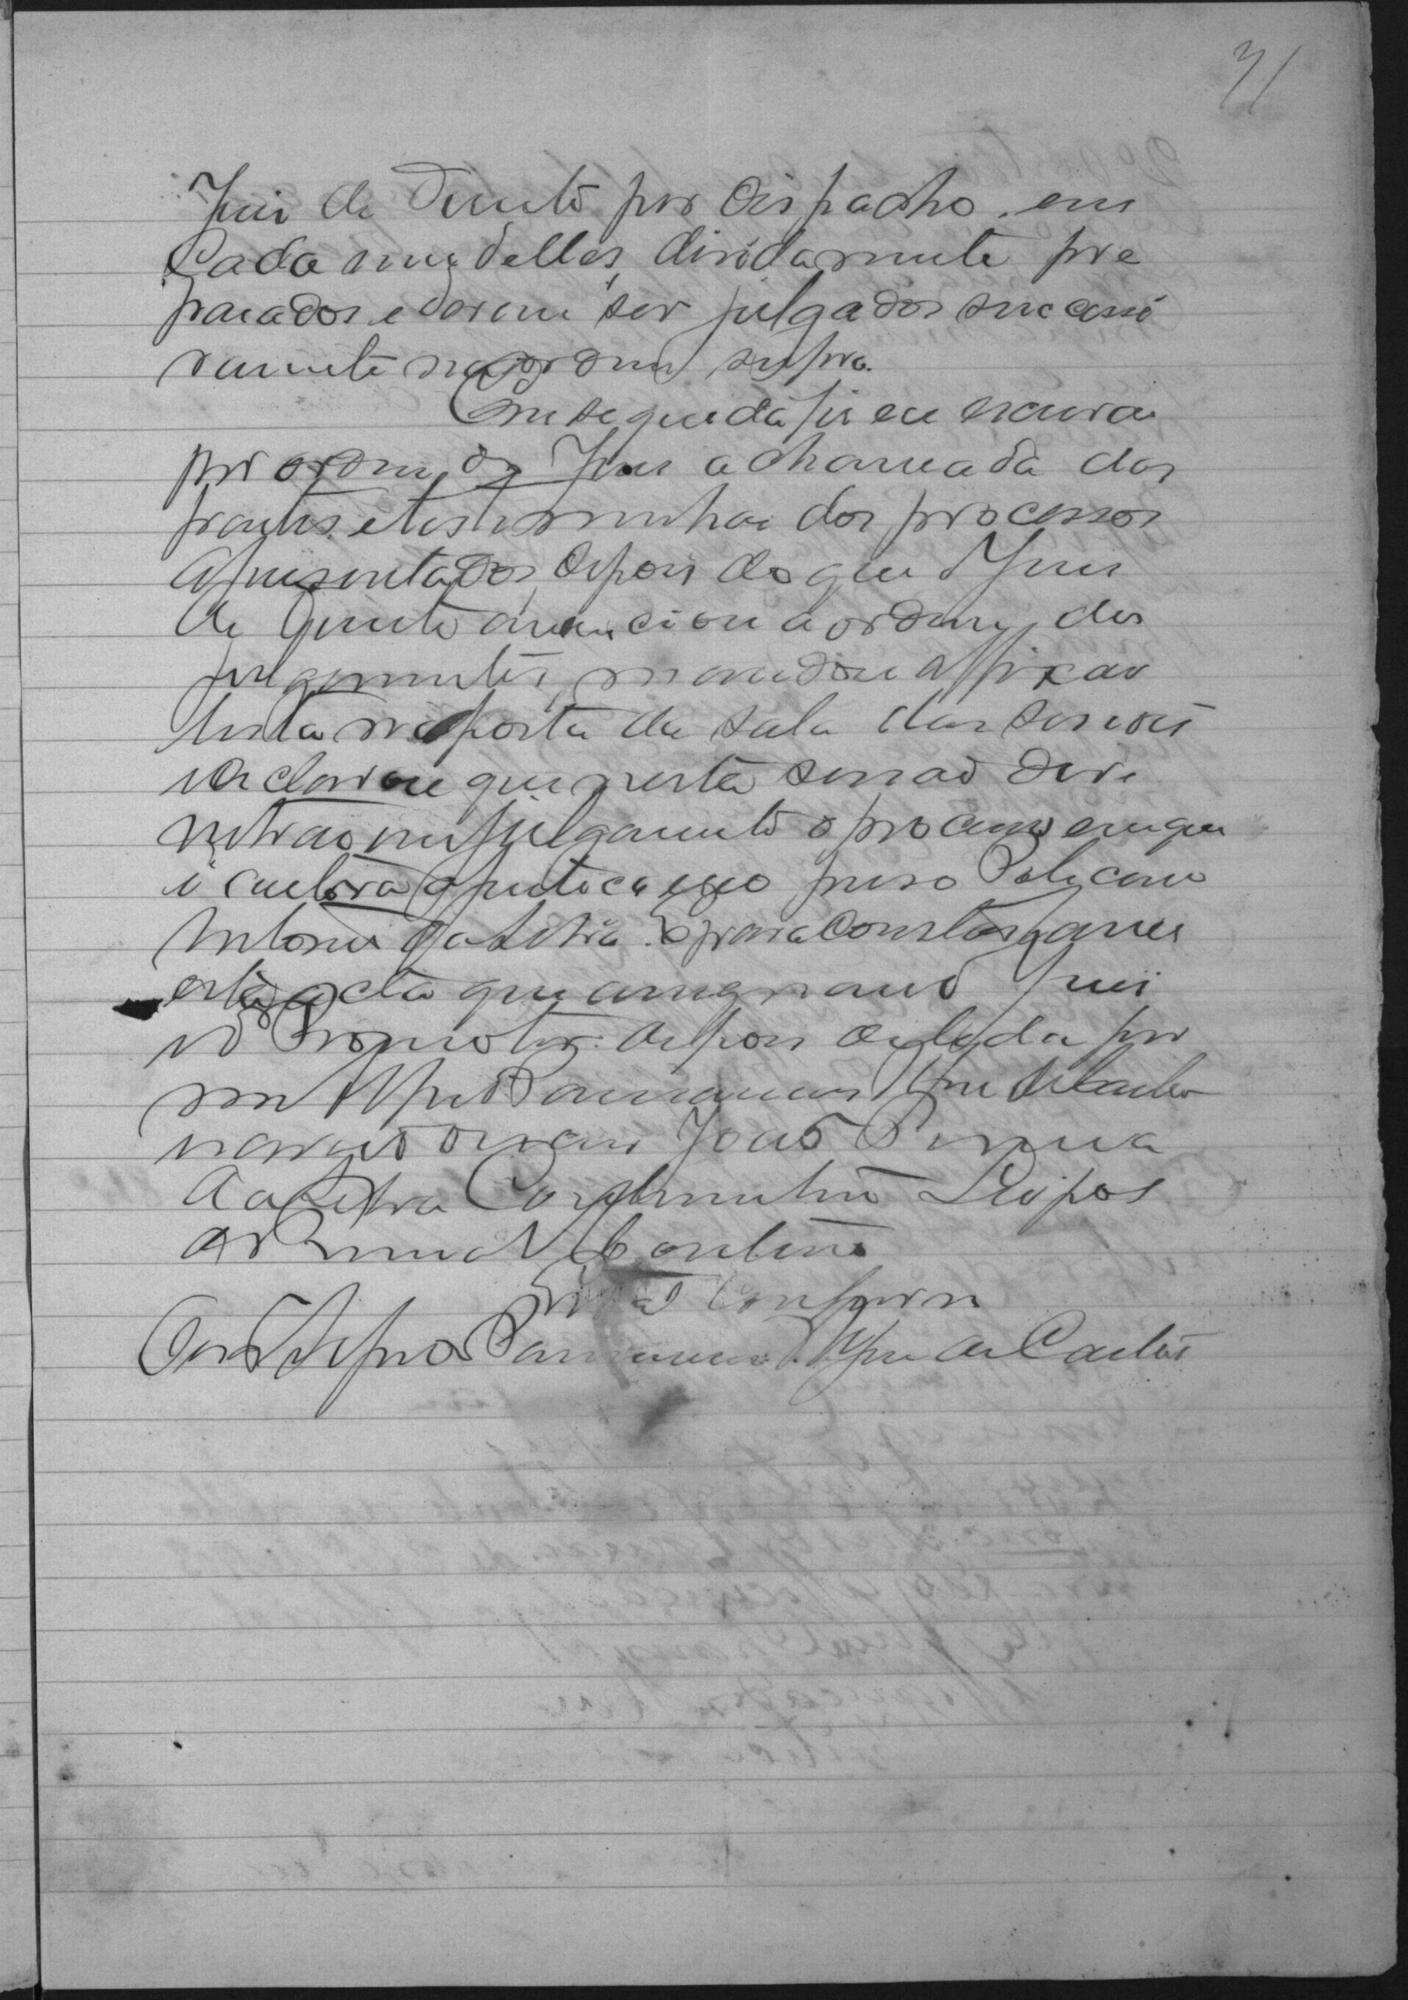 71
Juiz de Direito por despacho, em
cada um delles, devidamente pre
parados e devem ser julgados successi
vamente na ordem supra.
Em seguida fiz eu escrivão
por ordem do Juiz a chamada das
partes e testemunhas dos processos
apresentados, depois do que o Juiz
de Direito annunciou a ordem dos
julgamentos, mandou affixar
lista na porta da sala das sessões
e declarou que nesta sessão deve
entrar em julgamento o processo em que
é autora a justiça e reo preso Policarpo
Antonio da Silva. E para constar lavrei
esta acta que assignam o Juiz
e o Promotor depois de lida por
mim
escrivão o escrevi João Pereira
da Silva Constantino
Está conforme